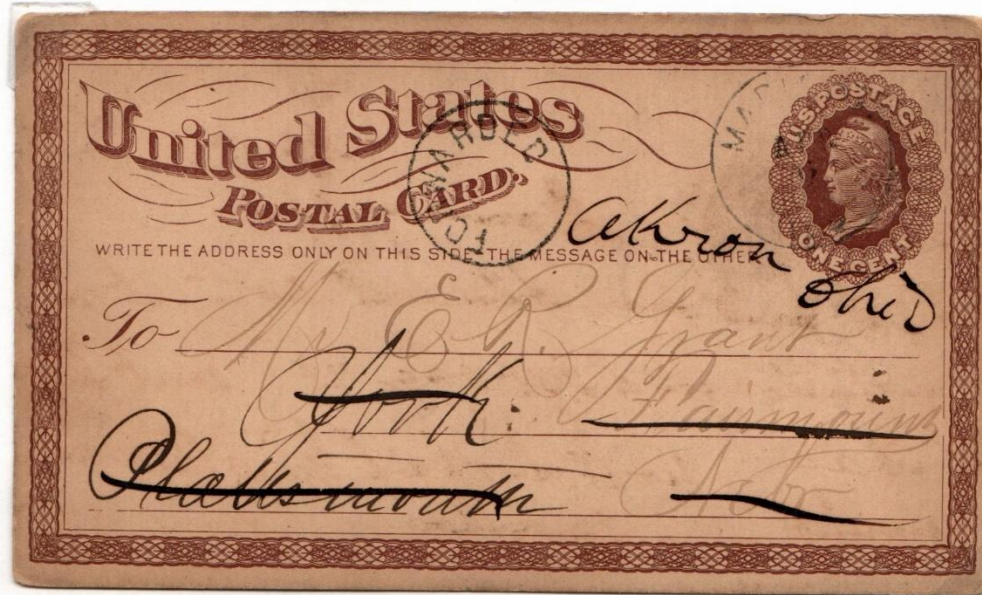 United States
POSTAL CARD.
U.S. POSTAGE
ONE CENT
WRITE THE ADDRESS ONLY ON THIS SIDE - THE MESSAGE ON THE OTHER
Akron
Ohio
To Mr E. R. Grant
York. Fairmount
Plattsmouth Nebr